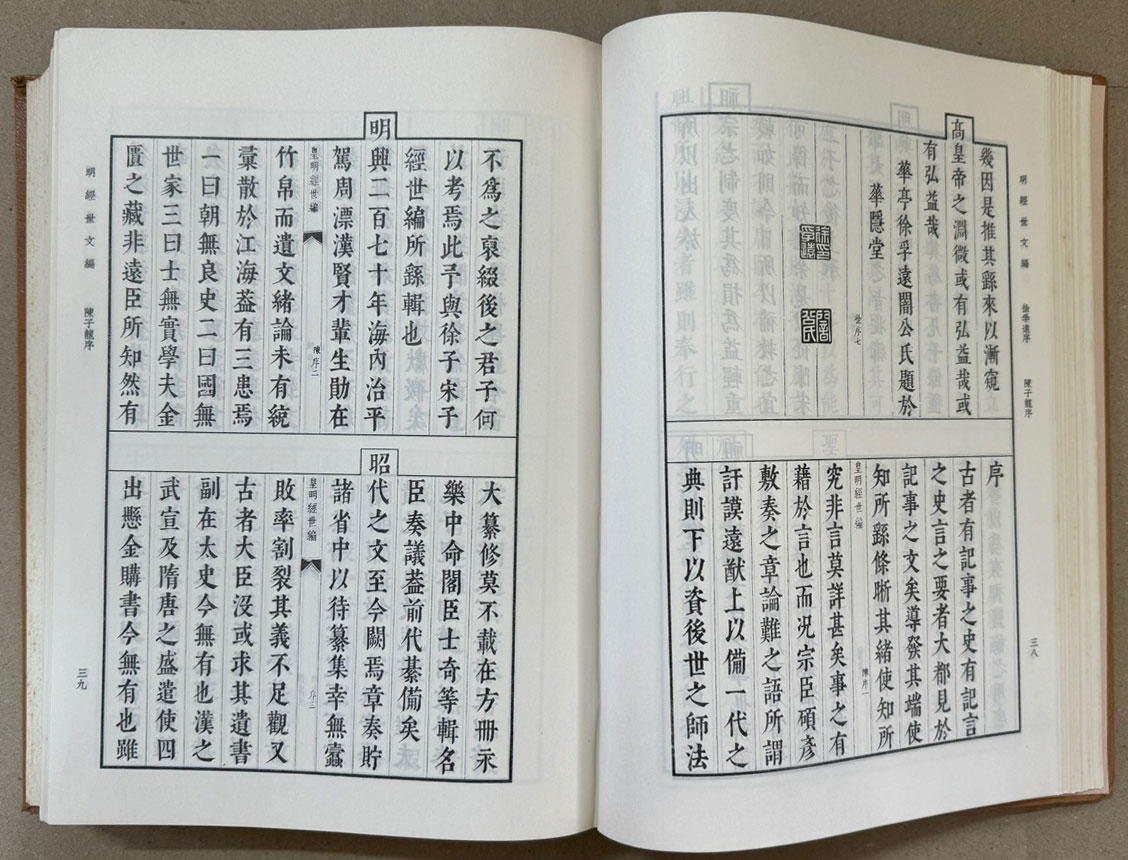 明經世文編 徐孚遠序 陳子龍序 三八
幾因是推其繇來以漸窺
高皇帝之淵微或有弘益哉或
有弘益哉
華亭徐孚遠闇公氏題於
華隱堂
徐序七
序
古者有記事之史有記言
之史言之要者大都見於
記事之文矣導發其端使
知所繇條晰其緒使知所
皇明經世編 陳序一
究非言莫詳甚矣事之有
藉於言也而况宗臣碩彥
敷奏之章論難之語所謂
訏謨遠猷上以備一代之
典則下以資後世之師法
不爲之裒綴後之君子何
以考焉此予與徐子宋子
經世編所繇輯也
明興二百七十年海內治平
駕周漂漢賢才輩生勛在
皇明經世編 陳序二
竹帛而遺文緒論未有統
彚散於江海葢有三患焉
一曰朝無良史二曰國無
世家三曰士無實學夫金
匱之藏非遠臣所知然有
大纂修莫不載在方冊永
樂中命閣臣士奇等輯名
臣奏議葢前代綦備矣
昭代之文至今闕焉章奏貯
諸省中以待纂集幸無蠹
皇明經世編 序三
敗率割裂其義不足觀又
古者大臣沒或求其遺書
副在太史今無有也漢之
武宣及隋唐之盛遣使四
出懸金購書今無有也雖
明經世文編 陳子龍序 三九